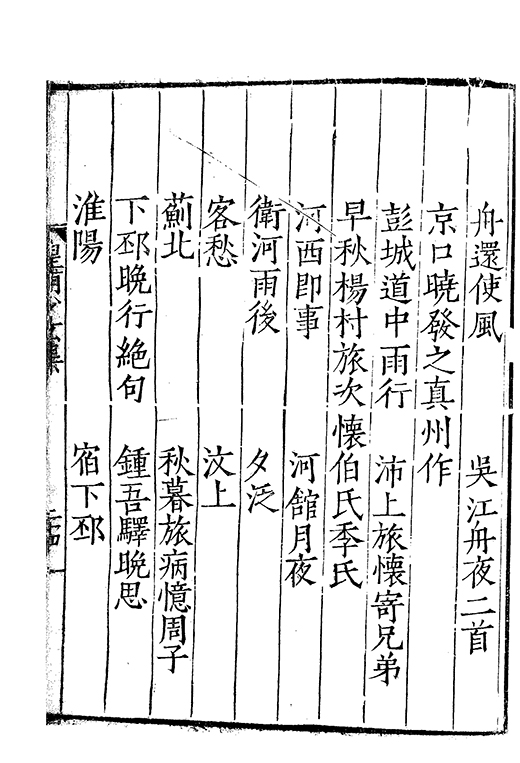 舟還使風　吳江舟夜二首
京口曉發之真州作
彭城道中雨行　沛上旅懷寄兄弟
早秋楊村旅次懷伯氏季氏
河西即事　河館月夜
衛河雨後　夕泛
客愁　汶上
薊北　秋暮旅病憶周子
下邳晚行絶句　鍾吾驛晚思
淮陽　宿下邳